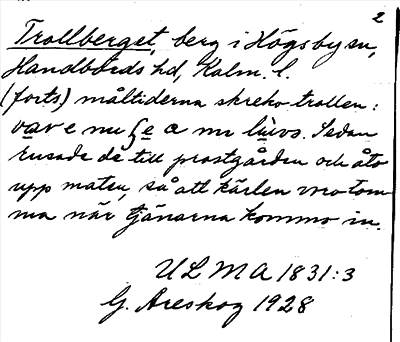 2
Trollberget, berg i Högsby sn,
Handbörds hd, Kalm. l.
(forts.) måltiderna skreko trollen:
var e nu mi luvs. Sedan
rusade de till prostgården och åto
upp maten, så att kärlen vro tom-
ma när tjänarna kommo in.
ULMA 1831:3
G. Areskog 1928